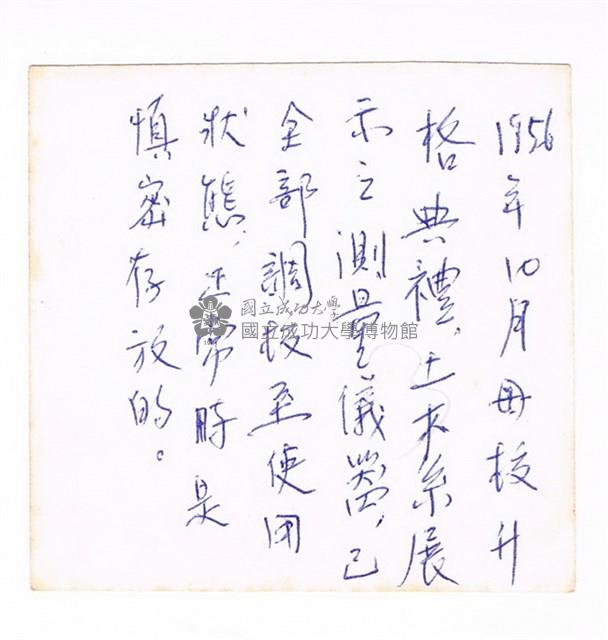 1956年10月母校升
格典禮,土木系展
示之測量儀器,已
全部調校至使用
狀態,正常時是
慎密存放的。
國立成功大學
國立成功大學博物館